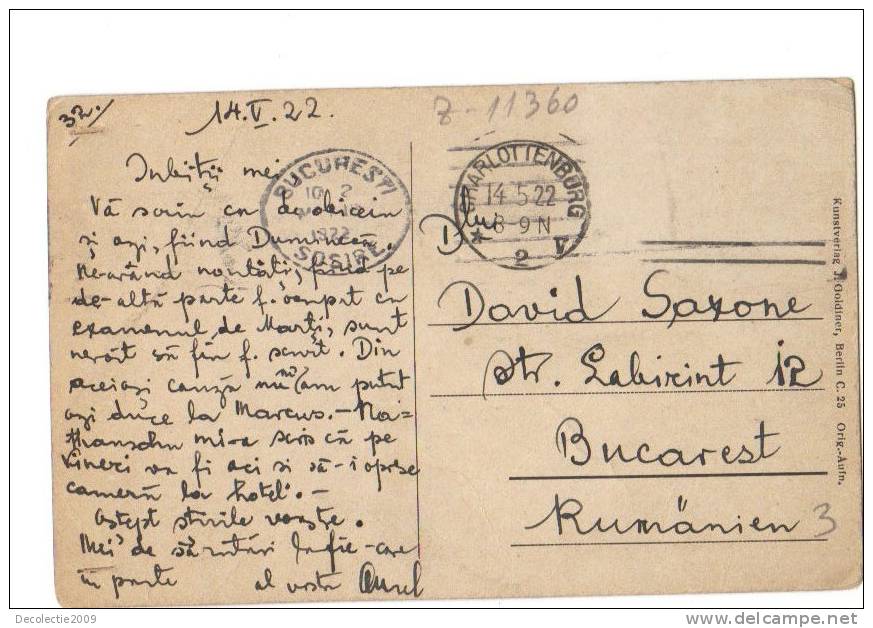 32.
14.V.22.
Z-11360
Iubiții mei
Vă scriu ca de obiceiu
și azi, fiind Duminecă.
Ne-având noutăți, fiind pe
de-altă parte f. ocupat cu
examenul de Marți, sunt
nevoit să fiu f. scurt. Din
aceiași cauză nu m'am putut
azi duce la Marcus.- Na-
thansohn mi-a scris că pe
Vineri va fi aci si să-i opresc
cameră la hotel.-
Aștept știrile voastre.
Mii de sărutări la fie-care
în parte al vostru Aurel
BUCUREȘTI
10 2
1922
SOSIRE
CHARLOTTENBURG
14.5.22
8-9 N
* 2 v
Dlui
David Saxone
str. Labirint 12
Bucarest
Rumänien
3
Kunstverlag J. Goldiner, Berlin C. 25 Orig.-Aufn.
Decolectie2009
delcampe.net